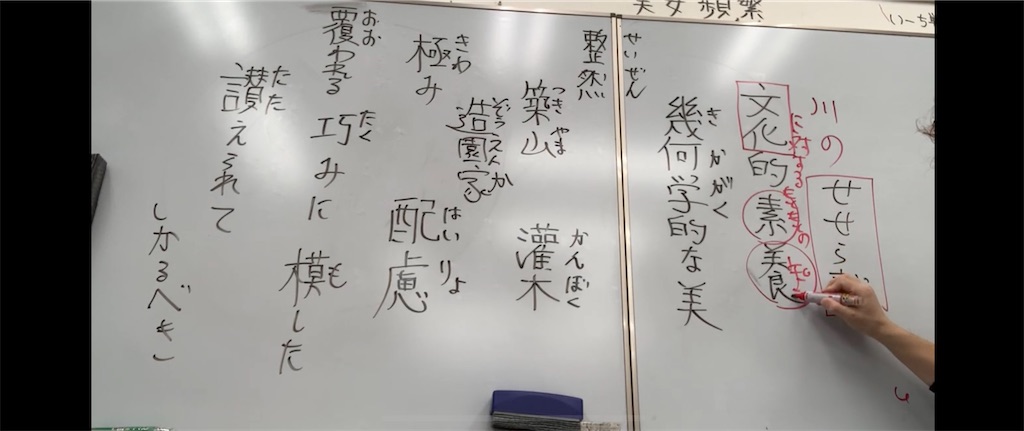 頻繁
川の
せせら
文化的素養
に対する
幾何学的な美
きかがく
整然
せいぜん
築山
つきやま
灌木
かんぼく
極み
きわ
造園家
ぞうえんか
配慮
はいりょ
覆われる
おお
巧みに
たく
模した
も
讃えられて
たた
しかるべき